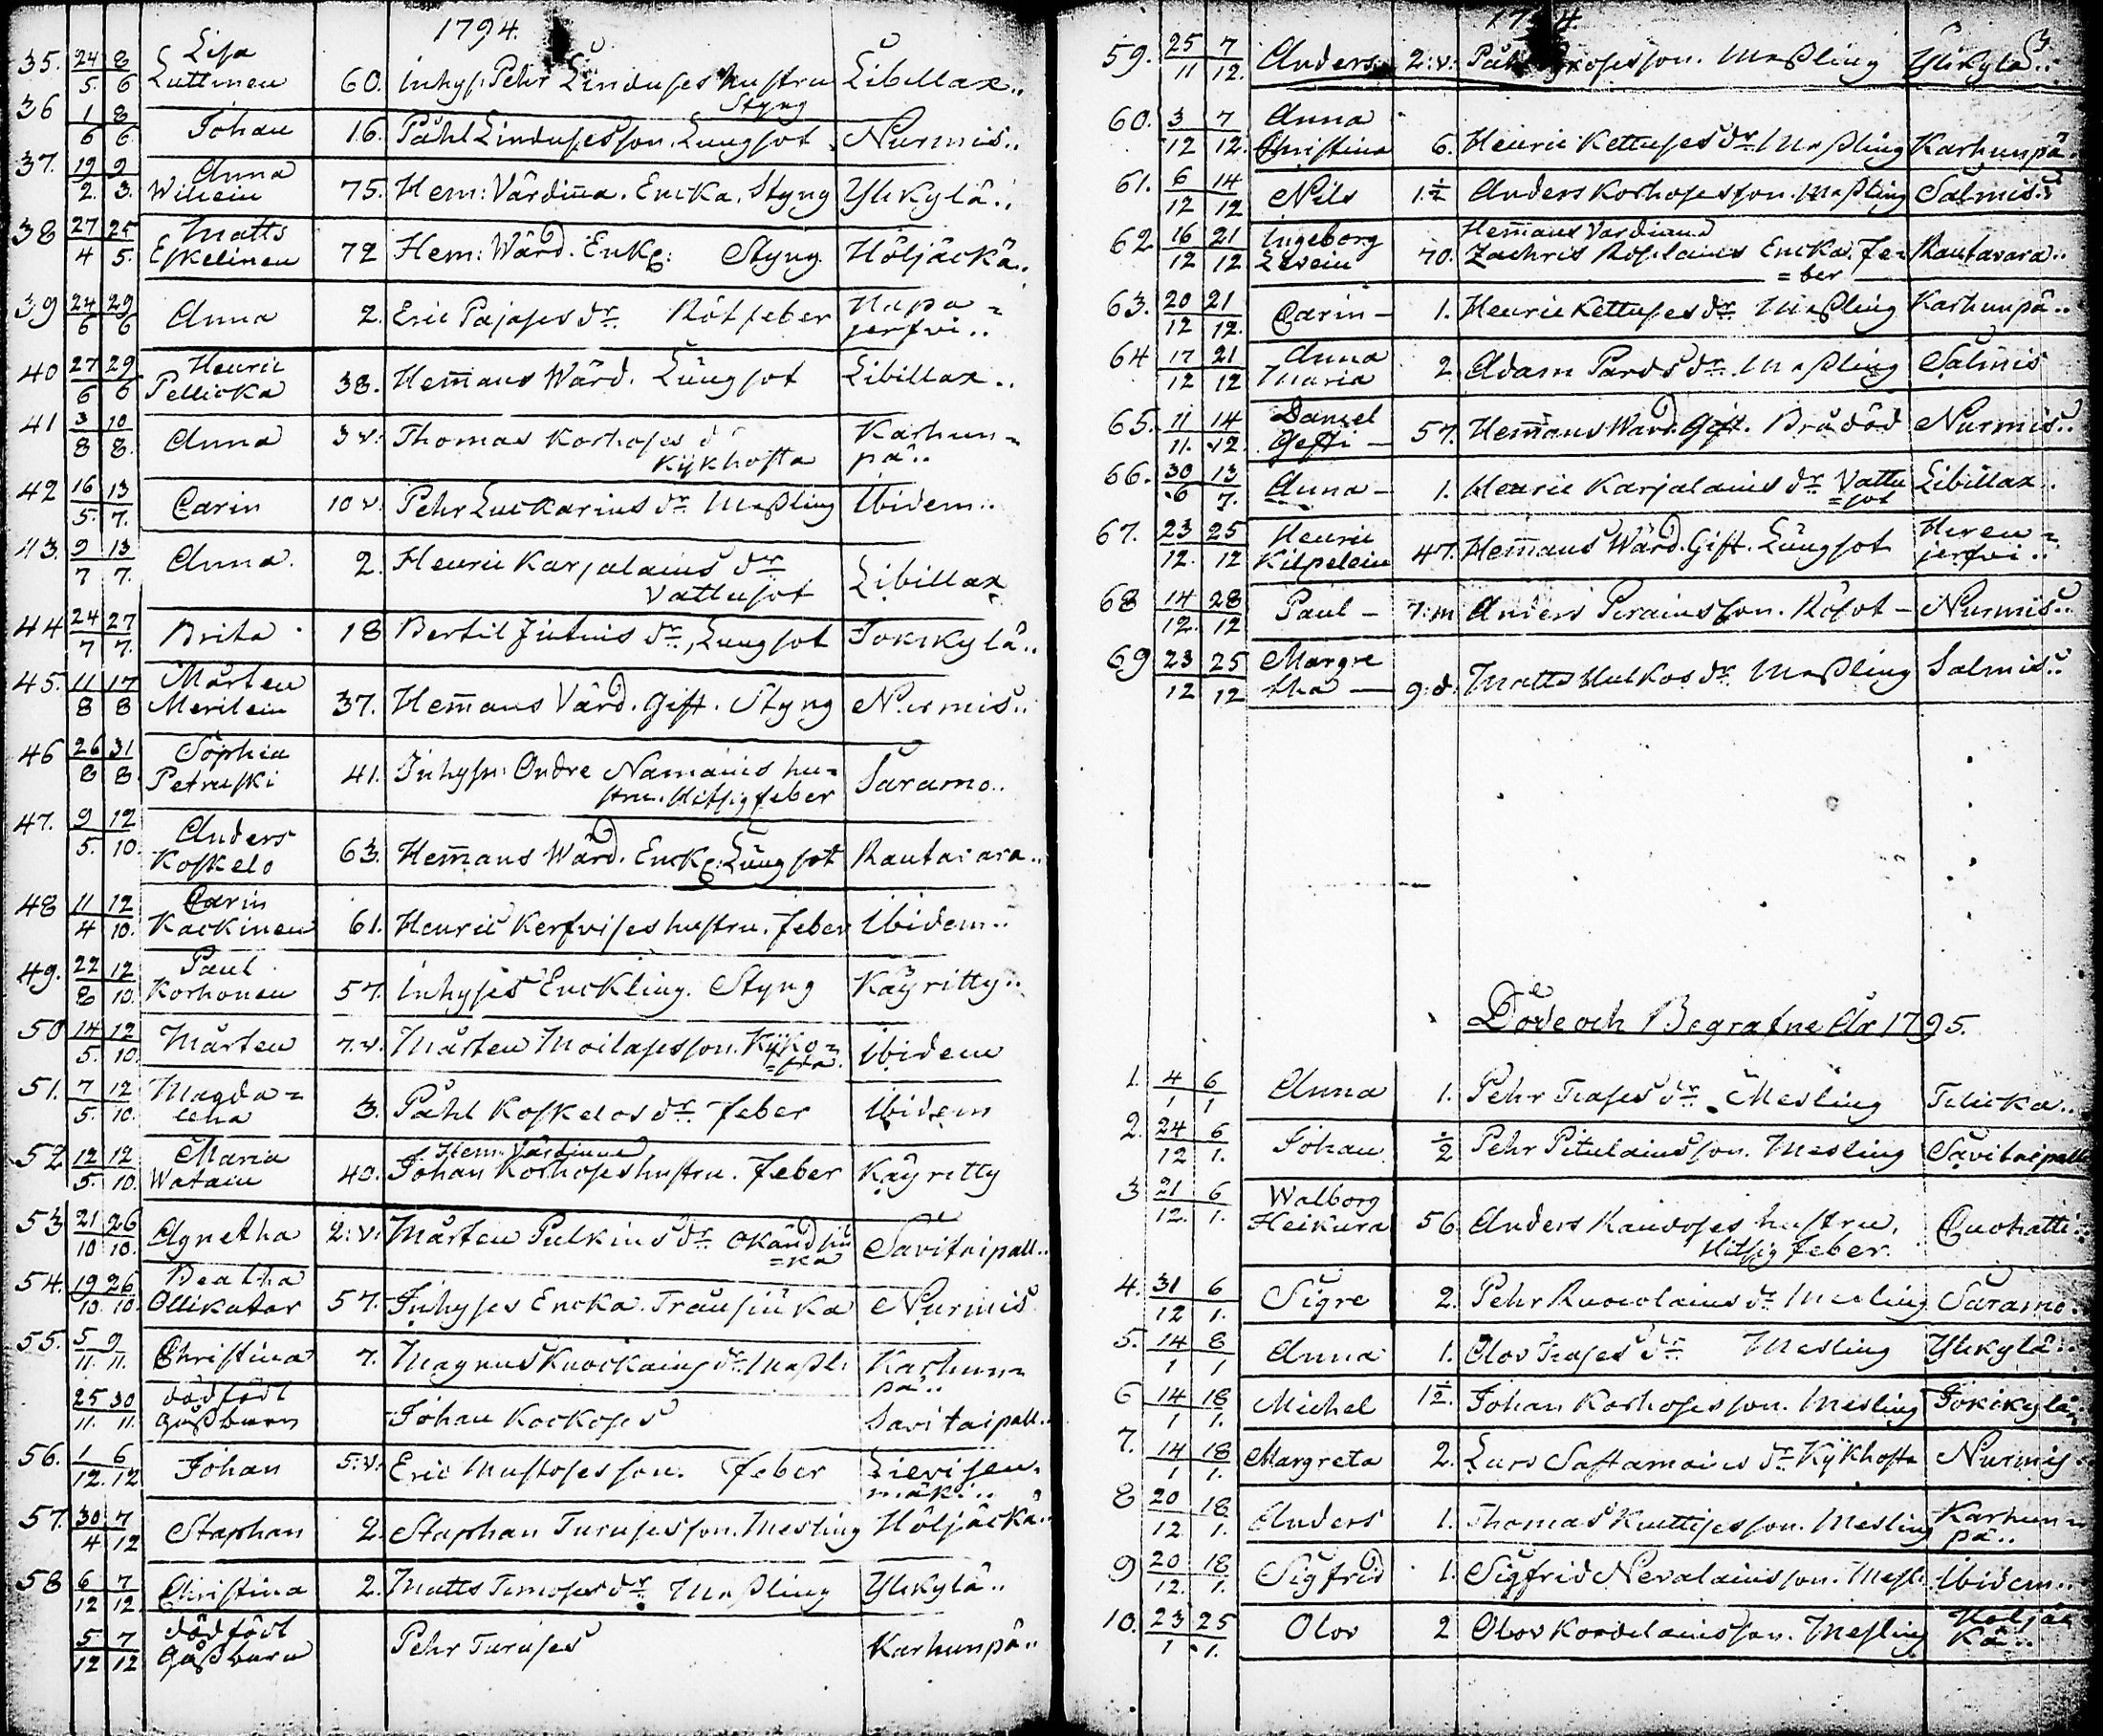 1794.
35. 24/5 8/6 Lisa Luttinen 60. inhys. Pehr Linduses hustru Styng Libillax..
36 1/6 8/6 Johan 16. Påhl Linduses son. Lungsot Nurmis..
37. 19/2. 9/3. Anna 75. Hem: Värdiña. Encka. Styng Ylikylä..
38 27/4 25/5. Matts Eskelinen 72 Hem: Wärd. Enkl: Styng Höljäckä..
39 24/6 29/6 Anna 2. Eric Pajases dr. Rötfeber
40 27/6 29/6 Henric Pellicka 38. Hem̃ans Wärd. Lungsot Libillax..
41 3/8 10/8. Anna 3 v. Thomas Korhoses dr Kykhosta Karhun=pä..
42 16/5. 13/7. Carin 10 v. Pehr Luckarins dr Meßling Ibidem..
43. 9/7 13/7. Anna. 2. Henric Karjalains dr Vattusot Libillax
44 24/7 27/7. Brita 18 Bertil Jutins dr, Lungsot Jokikylä..
45. 11/8 17/8 Mårten Merilein 37. Hem̃ans Värd. Gift. Styng Nurmis..
46 26/8 31/8 Sophia Petruski 41. Inhysn: Ondre Namains hu=stru. Hitsig feber Saramo..
47. 9/5. 12/10. Anders Koskelo 63. Hem̃ans Wärd. Enckl: Lungsot Rautavara..
48 11/4 12/10. Carin Kackinen 61. Henric Kerfvises hustru. feber Ibidem..
49. 22/8 12/10. Paul Korhonen 57. Inhyses Enckling. Styng Käyritty..
50 14/5. 12/10. Mårten 7. v. Mårten Moilases son. Kyko=sta. Ibidem
51. 7/5. 12/10. Magda=lena 3. Påhl Koskelos dr. feber Ibidem
52 12/5. 12/10. Maria Watain 40. Hem. Värdinna Johan Korhoses hustru. feber Käyritty
53 21/10 26/10. Agnetha 2: v. Mårten Pulkins dr. Okänd siu=ka Savitaipall..
54. 19/10. 26/10 Beatha Ollikatar 57. Inhyses Encka. Trånsiuka Nurmis
55. 5/11. 9/11. Christina 7. Magnus Kuockains dr. Meßl. Karhun=pä..
25/11. 30/11. dödfödt Goßbarn Johan Kockoses Savitaipall..
56. 1/12. 6/12 Johan 5. v. Eric Mustoses son. feber Lievisen=mäki..
57. 30/4 7/12 Staphan 2. Staphan Turuses son. Mesling Höljäckä..
58 6/12 7/12 Christina 2. Matts Timoses dr. Meßling Ylikylä..
5/12 7/12 dödfödt Goßbarn Pehr Turuses Karhunpä..
1794. 3
59. 25/11 7/12. Anders 2: v. Påhl son. Meßling Ylikylä..
60. 3/12 7/12. Anna Christina 6. Henric Kettuses dr. Meßling Karhunpä.
61. 6/12 14/12 Nils 1½ Anders Korhoses son. Meßling Salmis..
62 16/12 21/12 Ingeborg 70. Hem̃ans Vardinna Zachris Encka. Fe=ber Rautavara..
63. 20/12 21/12. Carin - 1. Henric Kettuses dr. Meßling Karhunpä..
64 17/12 21/12 Anna Maria 2. Adam Pards dr. Meßling Salmis
65. 11/11. 14/12. Daniel 57. Hem̃ans Wärd. Gift. Brådöd Nurmis..
66. 30/6 13/7. Anna - 1. Henric Karjalains dr Vattu=sot Libillax.
67. 23/12. 25/12 Henric Kilpelein 47. Hem̃ans Wärd. Gift. Lungsot Hiren=jerfvi..
68 14/12. 28/12 Paul - 7: m Anders Pirains son. Rösot - Nurmis..
69 23/12 25/12 Margre tha - 9: d. Matts Hulkos dr. Meßling Salmis..
Döde och Begrafne År 1795.
1. 4/1 6/1 Anna 1. Pehr Trases dr. Mesling
2. 24/12 6/1. Johan ½ Pehr Pitulains son. Mesling Savitaipall
3 21/12. 6/1. Walborg Heikura 56. Anders hustru. Hitsig feber. Cuohatti..
4. 31/12 6/1. Sigre 2. Pehr dr. Mesling Saramo.
5. 14/1 8/1 Anna 1. Olov Trases dr. Mesling Ylikylä..
6 14/1 18/1. Michel 1½. Johan Korhoses son. Mesling Jokikylä
7. 14/1 18/1. Margreta 2. Lars Sastamoins dr. Kykhosta Nurmis
8 20/12. 18/1. Anders 1. Thomas Kuittises son. Mesling Karhun=pä..
9 20/12. 18/1. Sigfrid 1. Sigfrid Nevalains son. Mesl. Ibidem..
10. 23/1 25/1. Olov 2 Olov Kordelains son. Mesling Höljäc kä..